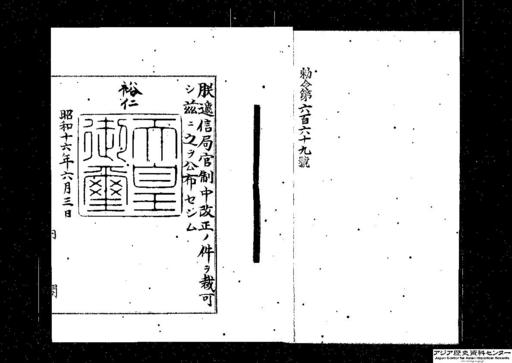 勅令第六百六十九號
朕遞信局官制中改正ノ件ヲ裁可
シ茲ニ之ヲ公布セシム
裕仁
天皇御璽
昭和十六年六月三日
内閣
アジア歴史資料センター
Japan Center for Asian Historical Records